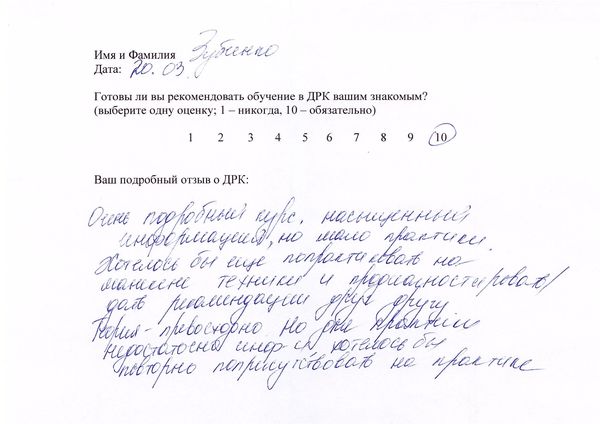 Имя и Фамилия Зубенко
Дата: 20.03
Готовы ли вы рекомендовать обучение в ДРК вашим знакомым?
(выберите одну оценку; 1 – никогда, 10 – обязательно)
1 2 3 4 5 6 7 8 9 10
Ваш подробный отзыв о ДРК:
Очень подробный курс, насыщенный
информацией, но мало практики.
Хотелось бы еще попрактиковать на
манекене техники и продиагностировать/
дать рекомендации друг другу
Теория - превосходно. Но для практики
недостаточно инф-ии хотелось бы
повторно поприсутствовать на практике